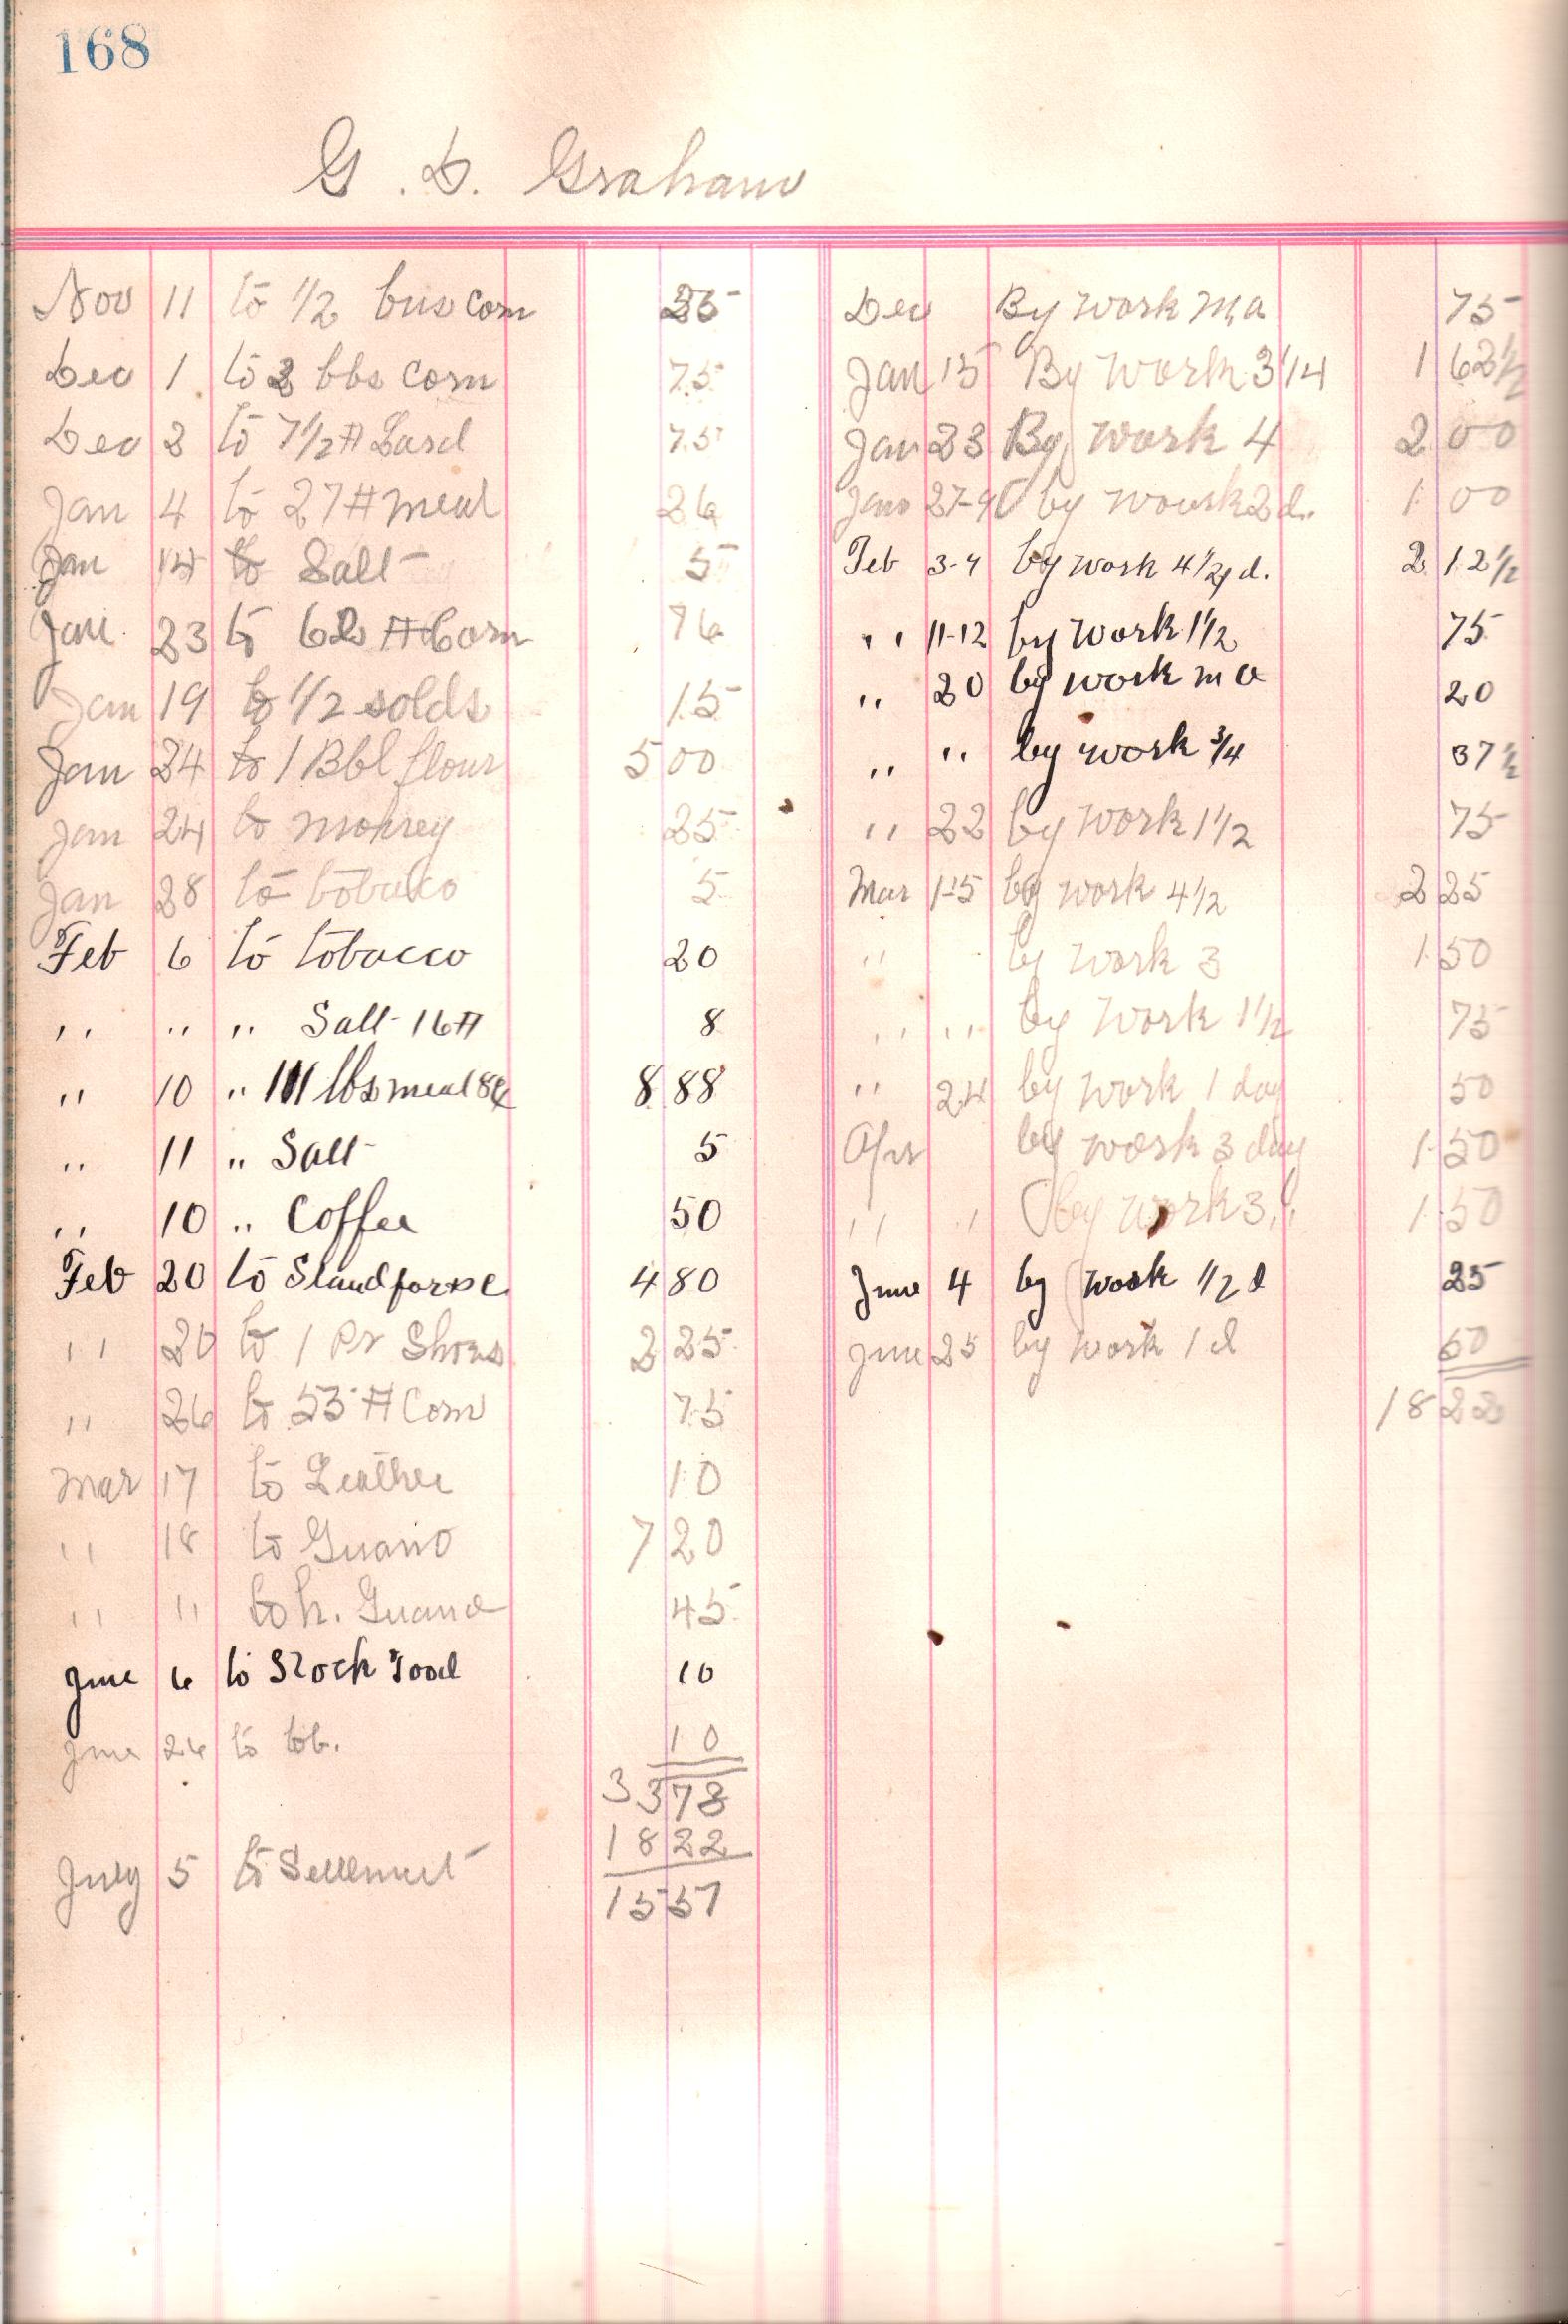 168
G. D. Graham
Nov 11 to 1/2 bus corn 35
Dec 1 to 2 bbs corn 75
Dec 3 to 7 1/2 # Lard 75
Jan 4 to 27 # meal 26
Jan 14 to Salt 5
Jan 23 to 62 # Corn 76
Jan 19 to 1/2 solds 15
Jan 24 to 1 Bbl flour 5 00
Jan 24 to 25
Jan 28 to tobacco 5
Feb 6 to tobacco 20
" " " Salt 16 # 8
" 10 " 111 lbs meal 8¢ 8 88
" 11 " Salt 5
" 10 " Coffee 50
Feb 20 to 4 80
" 20 to 1 Pr Shoes 2 25
" 26 to 53 # Corn 75
Mar 17 to Leather 10
" 18 to Guano 7 20
" " to h. Guano 45
June 6 to Stock food 10
June 26 to tob. 10
33 78
18 22
July 5 to Settlement
15 57
Dec By work ma 75
Jan 15 By work 3 1/4 1 62 1/2
Jan 23 By work 4 2 00
Jan 27-9 by work 2 d. 1 00
Feb 3-7 by work 4 1/4 d. 2 12 1/2
" 11-12 by work 1 1/2 75
" 20 by work ma 20
" " by work 3/4 37 1/2
" 22 by work 1 1/2 75
Mar 1-5 by work 4 1/2 2 25
" by work 3 1 50
" " by work 1 1/2 75
" 24 by work 1 day 50
Apr by work 3 day 1 50
" " by work 3 " 1 50
June 4 by work 1/2 d 25
June 25 by work 1 d 50
18 22